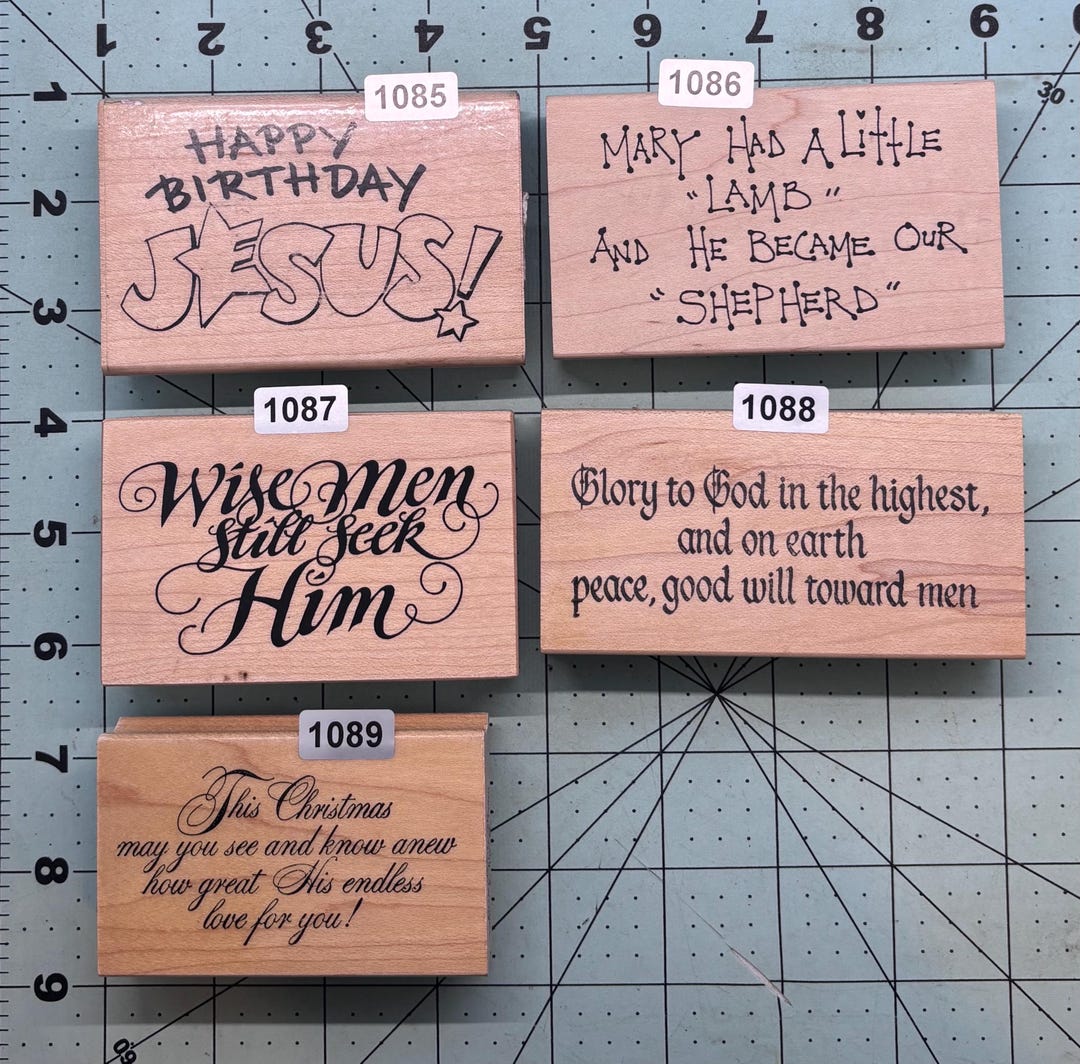 1 2 3 4 5 6 7 8 9
1
2
3
4
5
6
7
8
9
30
60
1085
HAPPY
BIRTHDAY
JESUS!
1086
MARY HAD A LittLE
"LAMB"
AND HE BECAME OUR
"SHEPHERD"
1087
Wise Men
still seek
Him
1088
Glory to God in the highest,
and on earth
peace, good will toward men
1089
This Christmas
may you see and know anew
how great His endless
love for you!